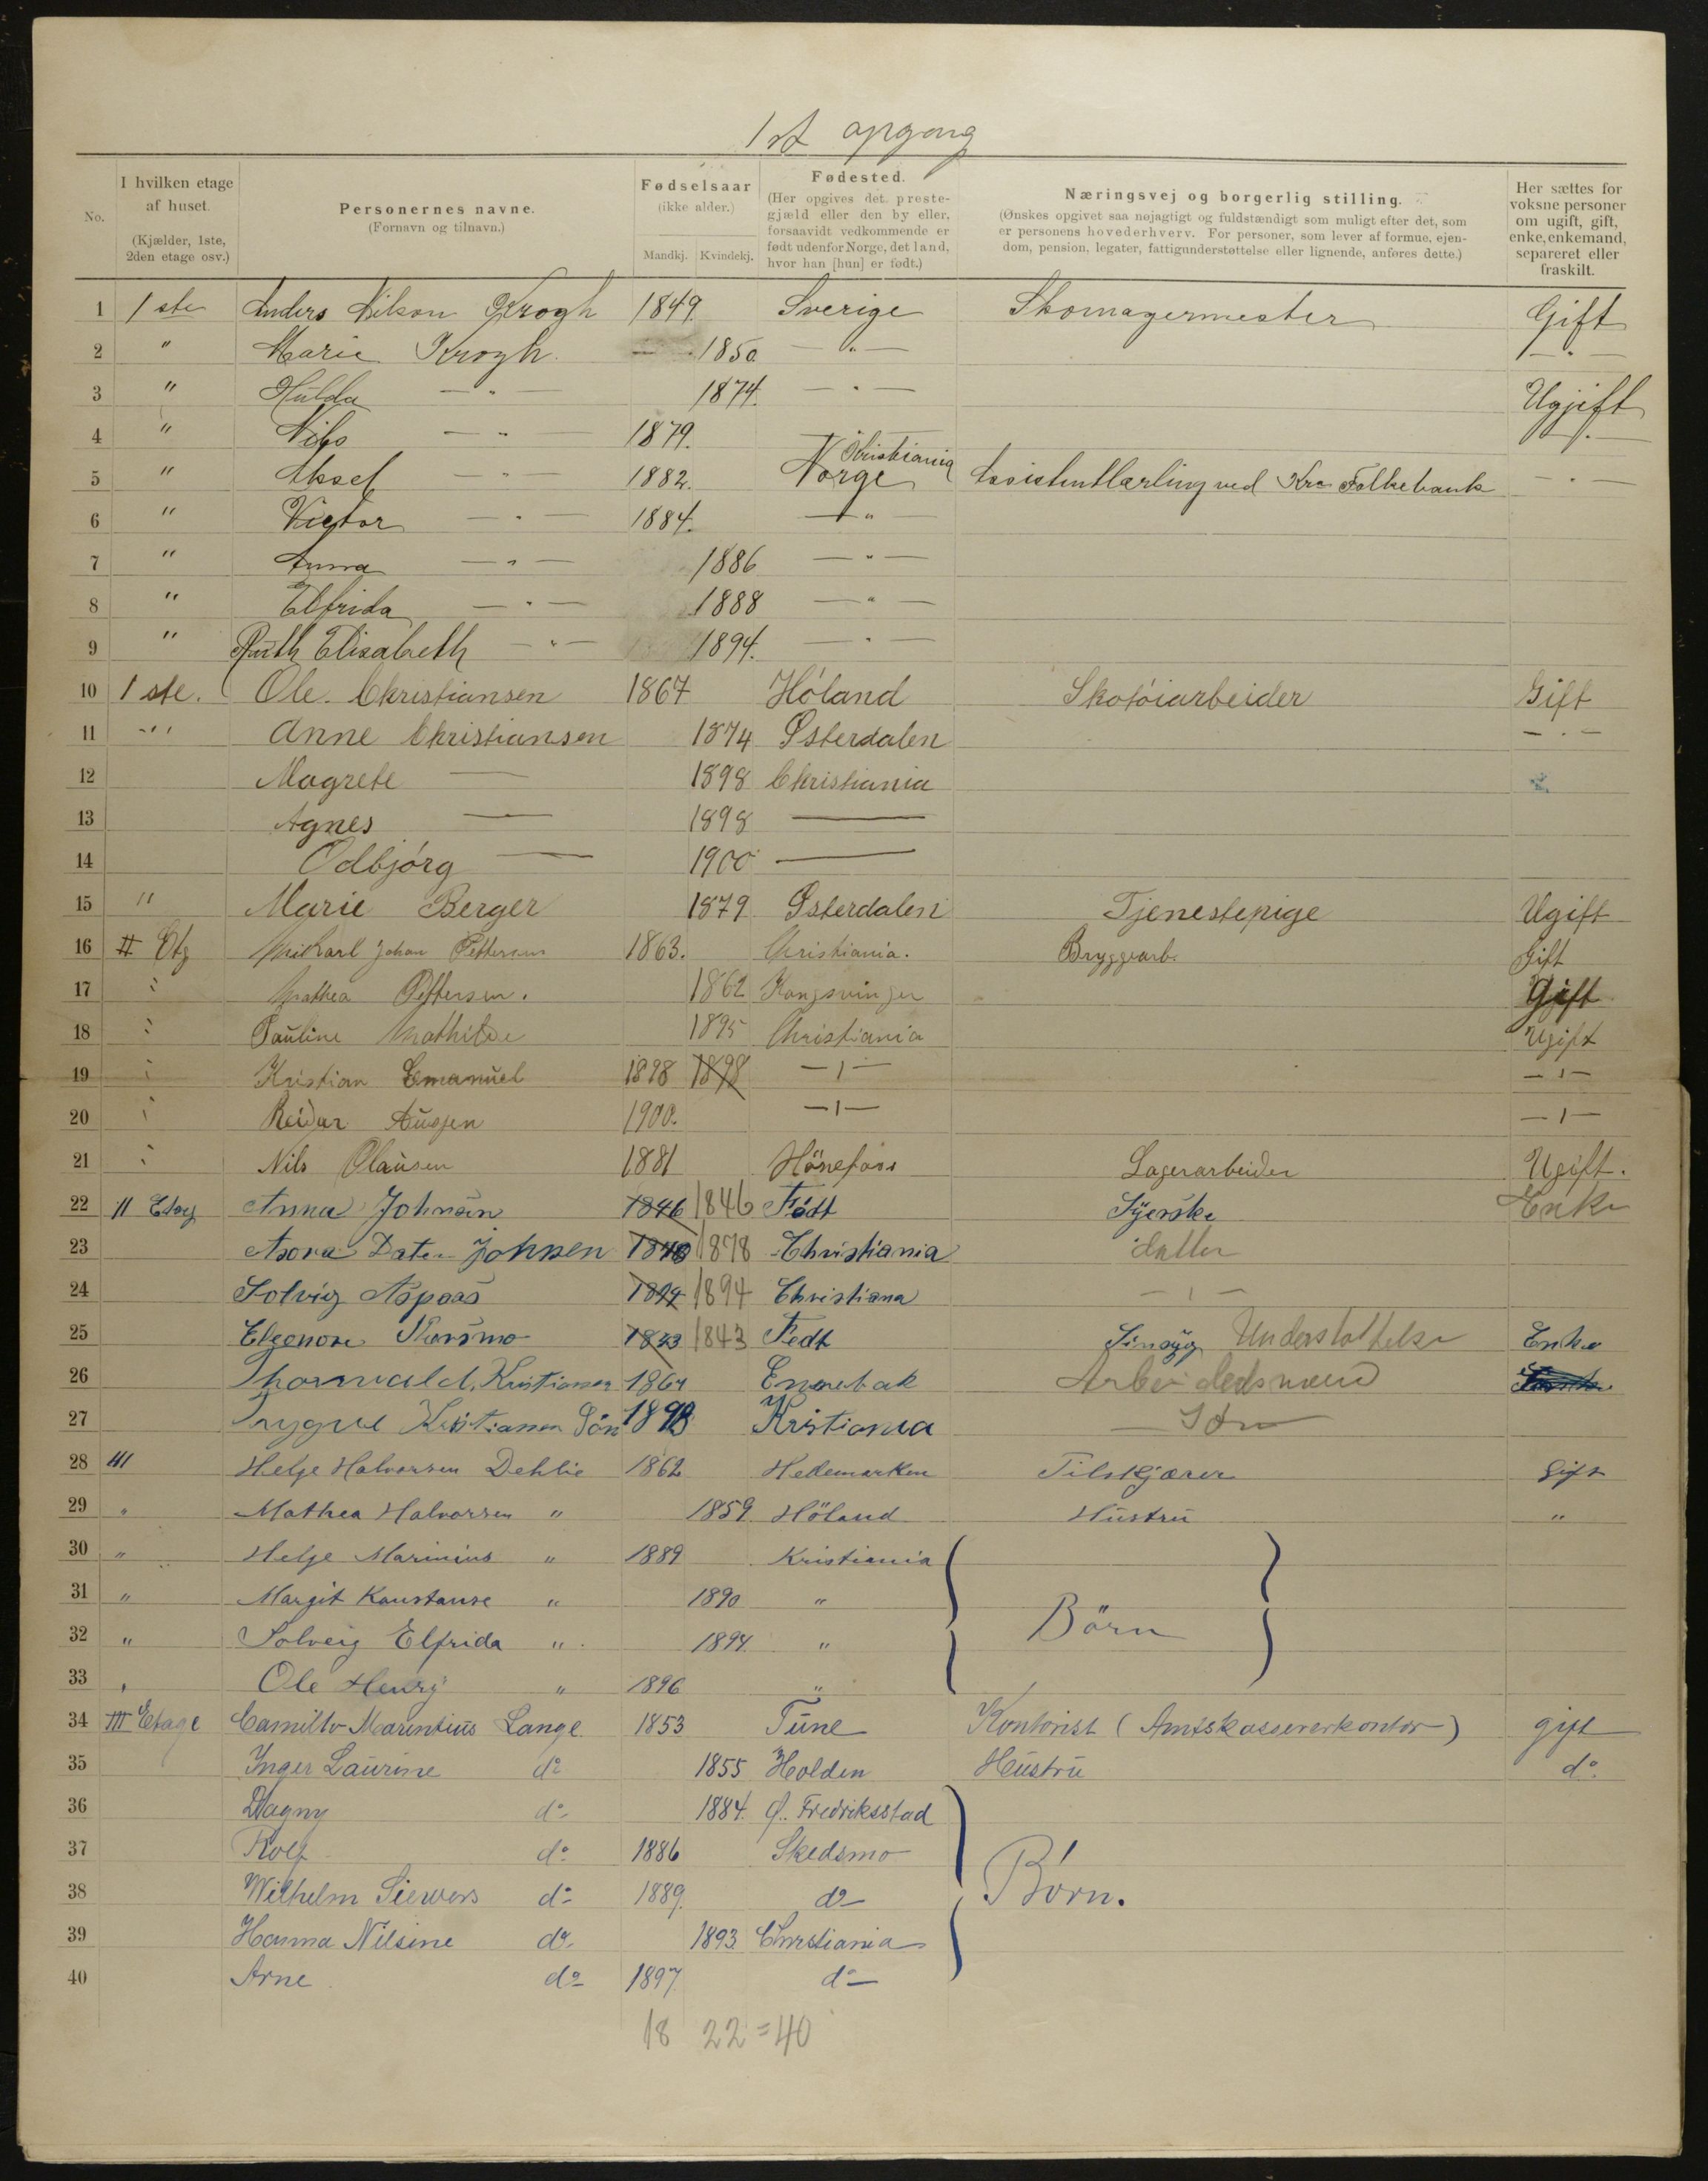 1st opgang
No.
I hvilken etage af huset. (Kjælder, 1ste, 2den etage osv.)
Personernes navne. (Fornavn og tilnavn.)
Fødselsaar (ikke alder.) Mandkj. Kvindekj.
Fødested. (Her opgives det. prestegjæld eller den by eller, forsaavidt vedkommende er født udenfor Norge, det land, hvor han [hun] er født.)
Næringsvej og borgerlig stilling. (Ønskes opgivet saa nøjagtigt og fuldstændigt som muligt efter det, som er personens hovederhverv. For personer, som lever af formue, ejendom, pension, legater, fattigunderstøttelse eller lignende, anføres dette.)
Her sættes for voksne personer om ugift, gift, enke, enkemand, separeret eller fraskilt.
1 1 ste Anders Nilson Krogh 1849. Sverige Skomagermester Gift
2 " Marie Krogh. 1850. — " — — " —
3 " Hulda — " — 1874. — " — Ugjift
4 " Nils — " — 1879. — " — — " —
5 " Aksel — " — 1882. Norge Christiania Assistentlærling ved Kra Folkebank — " —
6 " Victor — " — 1884. — " —
7 " Anna — " — 1886 — " —
8 " Elfrida — " — 1888 — " —
9 " Ruth Elisabeth — " — 1894. — " —
10 1 ste. Ole. Christiansen 1867 Høland Skotøiarbeider Gift
11 " Anne Christiansen 1874 Østerdalen — " —
12 Magrete — 1898 Christiania
13 Agnes — 1898 —
14 Odbjørg — 1900 —
15 " Marie Berger 1879 Østerdalen Tjenestepige Ugift
16 II Etg Karl Johan Pettersen 1863. Christiania. Bryggearb. Gift
17 " Mathea Pettersen. 1862 Kongsvinger Gift
18 " Pauline Mathilde 1895 Christiania Ugift
19 " Kristian Emanuel 1898 1898 — " — — " —
20 " Reidar 1900. — " — — " —
21 " Nils Olausen 1881 Hönefoss Lagerarbeider Ugift.
22 II Etag Anna Johnsen 1846 1846 Født Syerske Enke
23 Johnsen 1878 Christiania datter
24 Solvig Aspaas 1894 1894 Christiana — " —
25 Eleonore 1843 1843 Fedt Sinsyg Understøttelse Enke
26 Thorvald. Kristiansen 1864 Ennebak Arbeidedsmand
27 Trygve Kristiansen Sön 1898 Kristiania — Søn —
28 III Helge Halvorsen Dehlie 1862 Hedemarken Tilskjærer Gift
29 " Mathea Halvorsen " 1859 Höland Hustru "
30 " Helge Marinius " 1889 Kristiania
31 " Margit Konstanse " 1890 "
32 " Solveig Elfrida " 1894. " Börn
33 " Ole Henry " 1896 "
34 III Etage Camillo Marentius Lange. 1853 Tune Kontorist (Amtskassererkontor) gift
35 Inger Laurine do 1855 Holden Hustru do.
36 Dagny do 1884. Fredriksstad
37 Rolf do 1886 Skedsmo
38 Wilhelm Siewers do 1889. do Børn.
39 Hanna Nilsine do 1893 Christiania
40 Arne do 1897 do
18 22 = 40